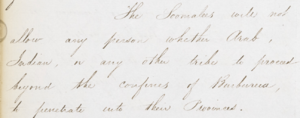 The Soomalees will not
allow any person whether Arab,
Indian, or any other tribes to proceed
beyond the confines of Burburra,
to penetrate into their Provinces.